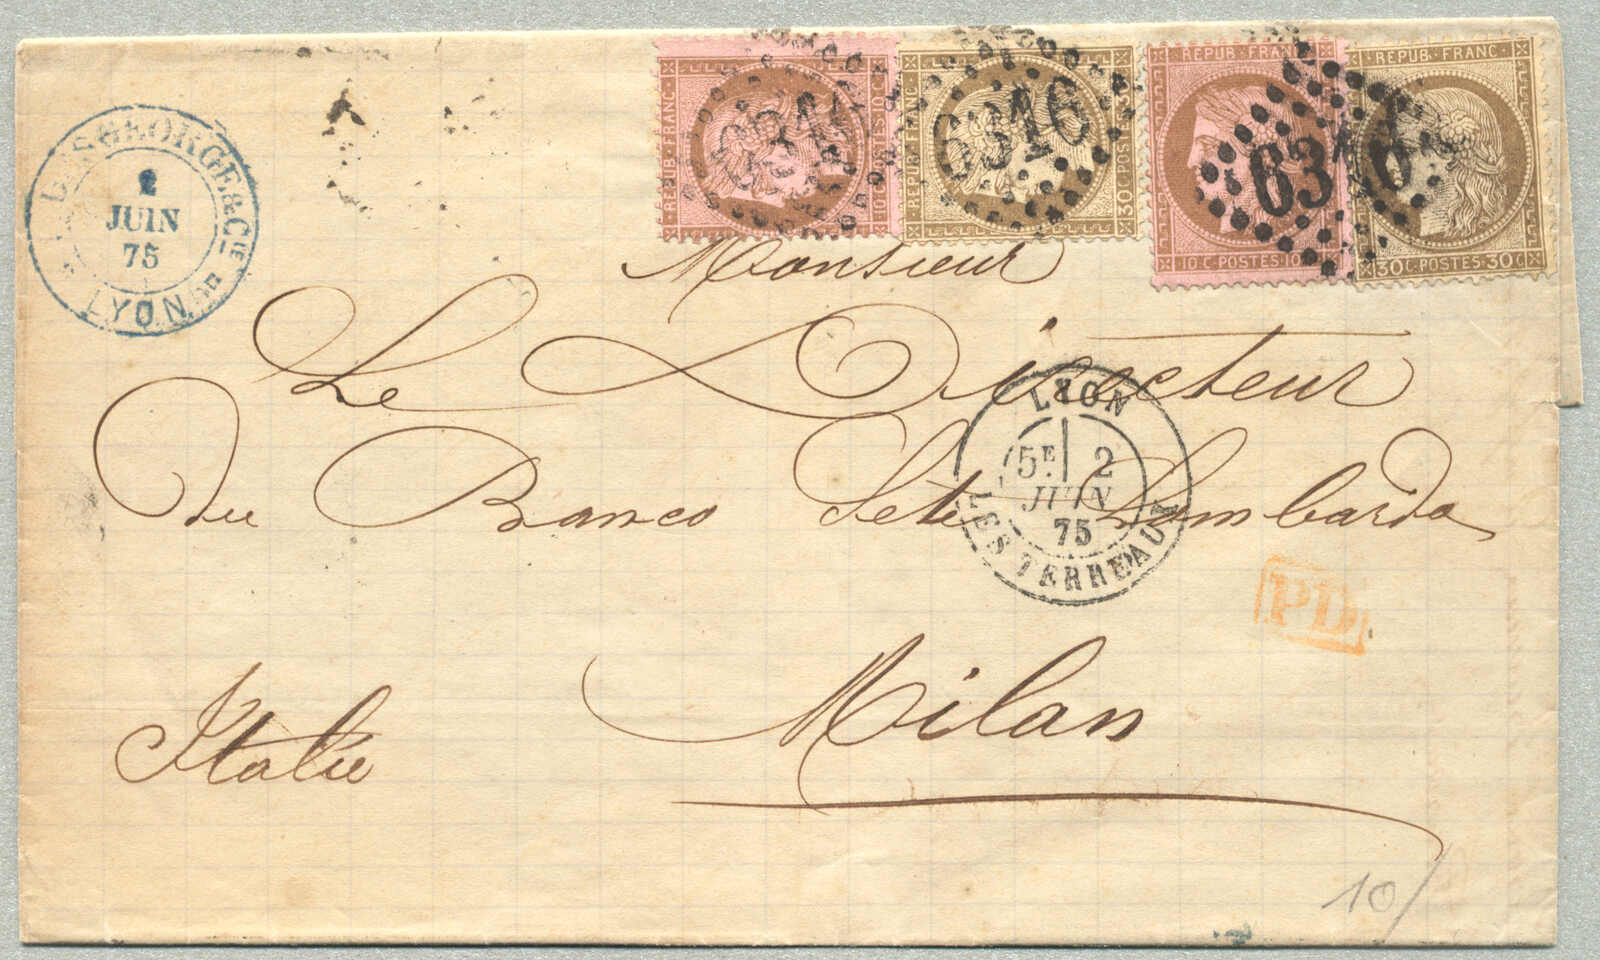 DESGEORGE & Cie
2
JUIN
75
LYON
REPUB·FRANC·
10 C·POSTES·10 C
REPUB·FRANC·
30 C·POSTES·30 C
REPUB·FRANC·
10 C·POSTES·10 C
REPUB·FRANC·
30 C·POSTES·30 C·
6316
6316
6316
Monsieur
Le Directeur
du Banco Sete Lombardo
LYON
5E 2
JUIN
75
LES TERREAUX
PD
Milan
Italie
10/